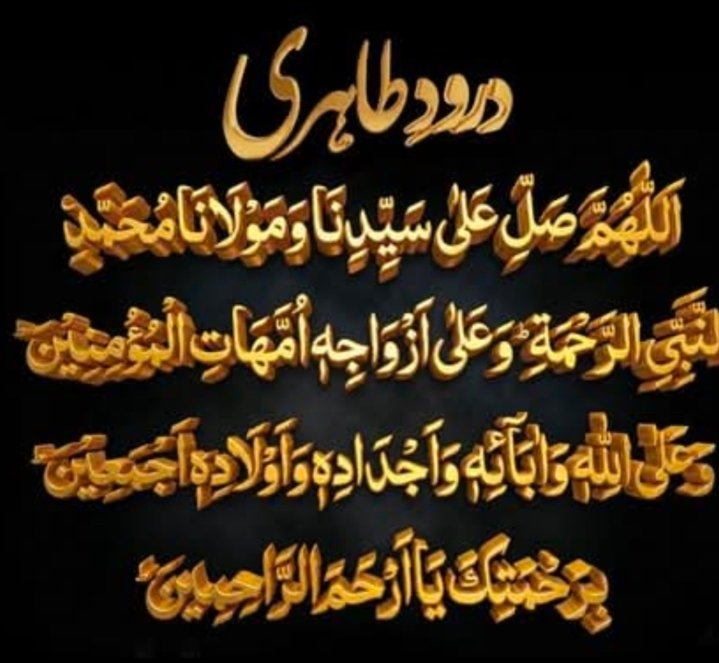 درود طاہری
اَللّٰهُمَّ صَلِّ عَلٰى سَيِّدِنَا وَمَوْلَانَا مُحَمَّدٍ
لنَّبِيِّ الرَّحْمَةِ ؕ وَعَلٰى اَزْوَاجِهٖ اُمَّهَاتِ الْمُؤْمِنِيْنَ
وَعَلٰى اٰلِهٖ وَاٰبَآئِهٖ وَاَجْدَادِهٖ وَاَوْلَادِهٖ اَجْمَعِيْنَ
بِرَحْمَتِكَ يَا اَرْحَمَ الرَّاحِمِيْنَ